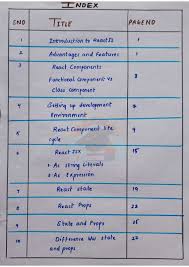 INDEX
SNO TITLE PAGE NO
1 Introduction to React Js 1
2 Advantages and Features 1
3 React Components 3
Functional Component vs
Class Component
4 Setting up development
Environment
5 React Component life
cycle
6 React JSX 15
1 As string literals
2 As expression
7 React state 19
8 React Props 22
9 State and Props 25
10 Difference b/w state 27
and props